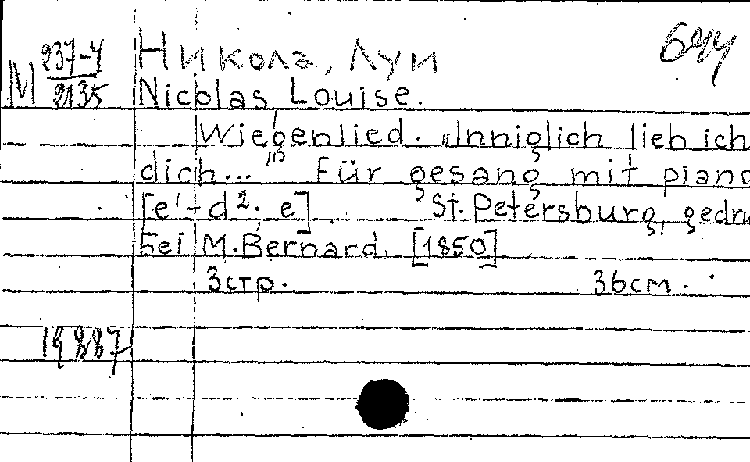 М 237-4 Николэ, Луи 644
2135 Nicolas Louise.
Wiegenlied. „Inniglich lieb ich
dich..." Für gesang mit piano
[e'-d². e] St. Petersburg, gedru
bei M. Bernard. [1850]
3 стр. 36 см.
19887